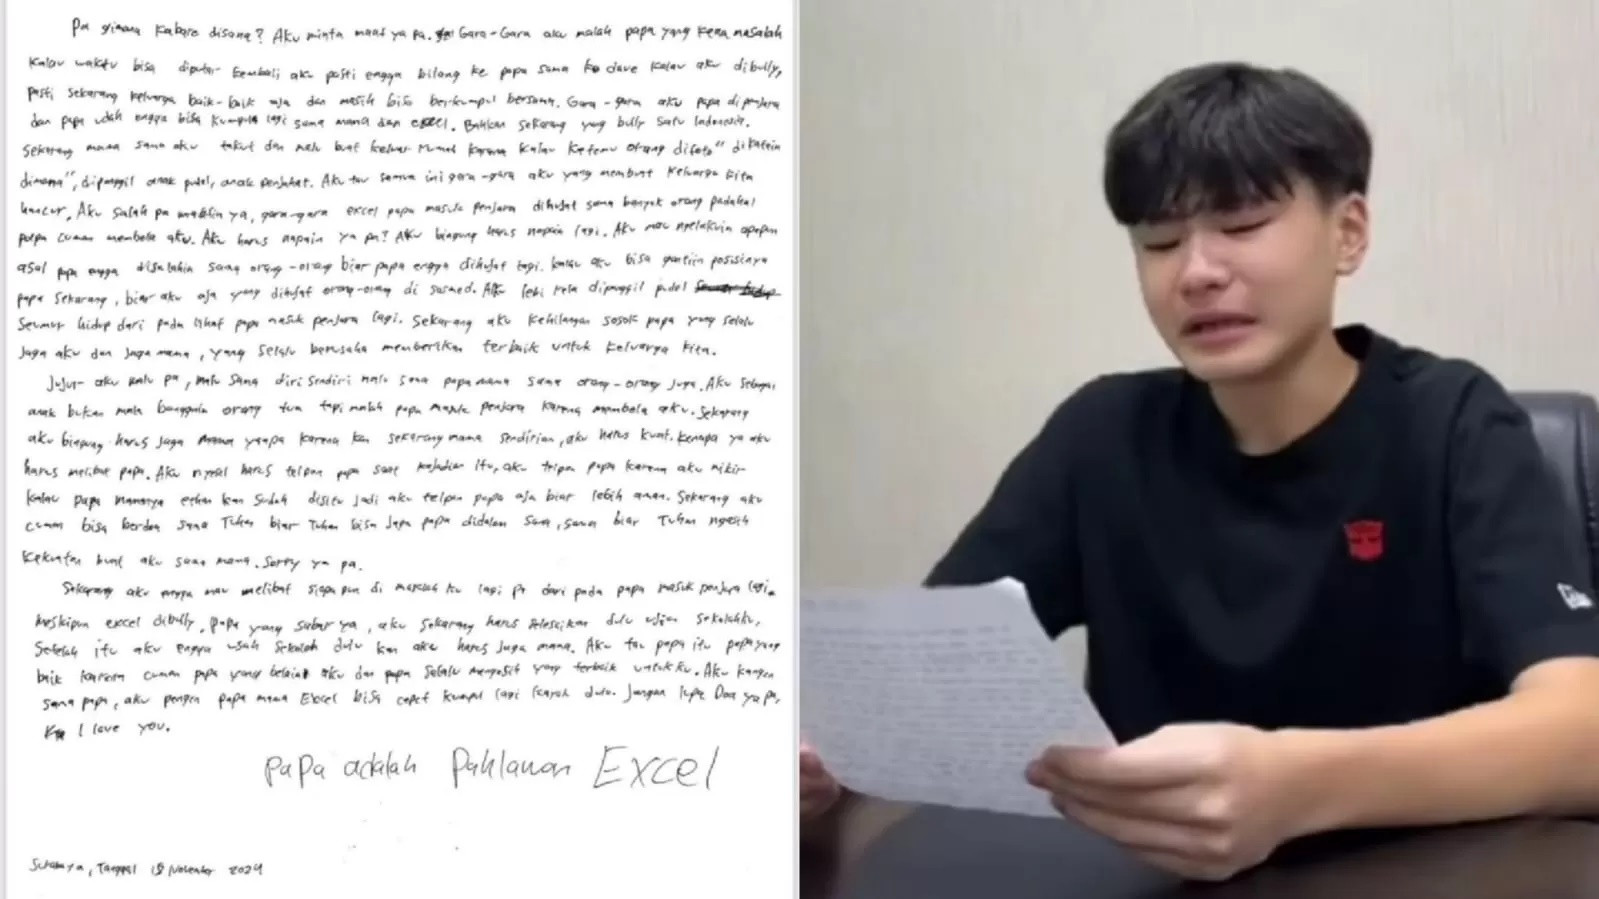 Pa gimana kabare disana? Aku minta maaf ya pa. Gara-Gara aku malah papa yang kena masalah
Kalau waktu bisa diputar kembali aku pasti engga bilang ke papa sama ko dave kalau aku dibully,
pasti sekarang keluarga baik-baik aja dan masih bisa berkumpul bersama. Gara-gara aku papa dipenjara
dan papa udah engga bisa kumpul lagi sama mama dan excel. Bahkan sekarang yang bully satu Indonesia.
Sekarang mama sama aku takut dan malu buat keluar rumah karena kalau ketemu orang difoto" dikatain
dimana", dipanggil anak pudel, anak penjahat. Aku tau semua ini gara-gara aku yang membuat keluarga kita
hancur. Aku salah pa maafin ya, gara-gara excel papa masuk penjara dihujat sama banyak orang padahal
papa cuman membela aku. Aku harus ngapain ya pa? Aku bingung harus ngapain lagi. Aku mau ngelakuin apapun
asal papa engga disalahin sama orang-orang biar papa engga dihujat lagi. kalau aku bisa gantiin posisinya
papa sekarang, biar aku aja yang dihujat orang-orang di sosmed. Aku lebi rela dipanggil pudel
Seumur hidup dari pada lihat papa masuk penjara lagi. Sekarang aku kehilangan sosok papa yang selalu
jaga aku dan jaga mama, yang selalu berusaha memberikan terbaik untuk keluarga kita.
Jujur aku malu pa, malu sama diri sendiri malu sama papa mama sama orang-orang juga. Aku sebagai
anak bukan mala banggain orang tua tapi malah papa masuk penjara karena membela aku. Sekarang
aku bingung harus jaga mama yaapa karena kan sekarang mama sendirian, aku harus kuat. Kenapa ya aku
harus melibat papa. Aku nyesel harus telpon papa saat kejadian itu, aku telpon papa karena aku mikir
kalau papa mamanya ethan kan sudah disitu jadi aku telpon papa aja biar lebih aman. Sekarang aku
cuman bisa berdoa sama Tuhan biar Tuhan bisa jaga papa didalam sana, sama biar Tuhan ngasih
kekuatan buat aku sama mama. Sorry ya pa.
Sekarang aku engga mau melibat siapa pun di masalah ku lagi Pa dari pada papa masuk penjara lagi.
meskipun excel dibully. Papa yang sabar ya, aku sekarang harus selesaikan dulu ujian sekolahku,
Setelah itu aku engga usah sekolah dulu kan aku harus jaga mama. Aku tau papa itu papa yang
baik karena cuman papa yang belain aku dan papa selalu mengasih yang terbaik untukku. Aku kangen
sama papa, aku pengen papa mama Excel bisa cepet kumpul lagi kayak dulu. Jangan lupa Doa ya pa,
I love you.
Papa adalah Pahlawan Excel
Surabaya, Tanggal November 2024